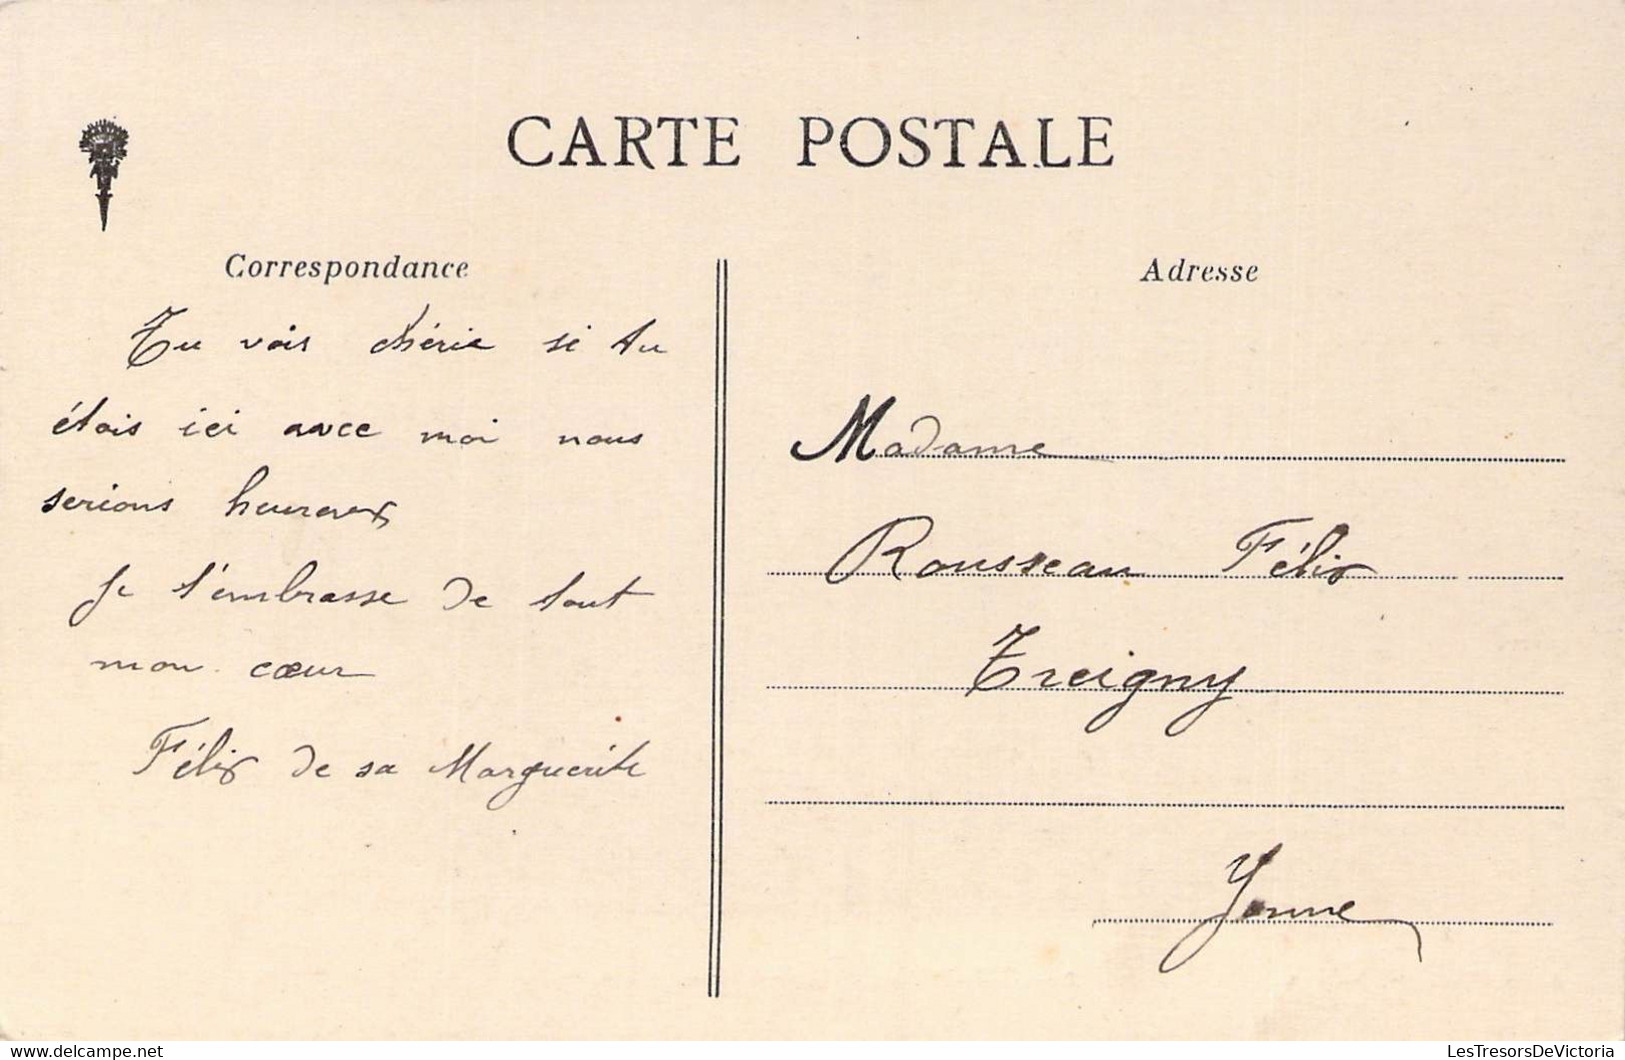 CARTE POSTALE
Correspondance
Tu vois chérie si tu
étais ici avec moi nous
serions heureux
Je t'embrasse de tout
mon cœur
Félix de sa Marguerite
Adresse
Madame
Rousseau Félix
Treigny
Yonne
LesTresorsDeVictoria
delcampe.net